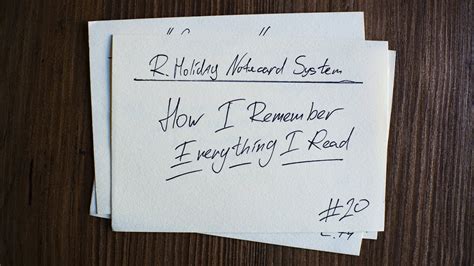 R. Holiday Notecard System
How I Remember
Everything I Read
#20